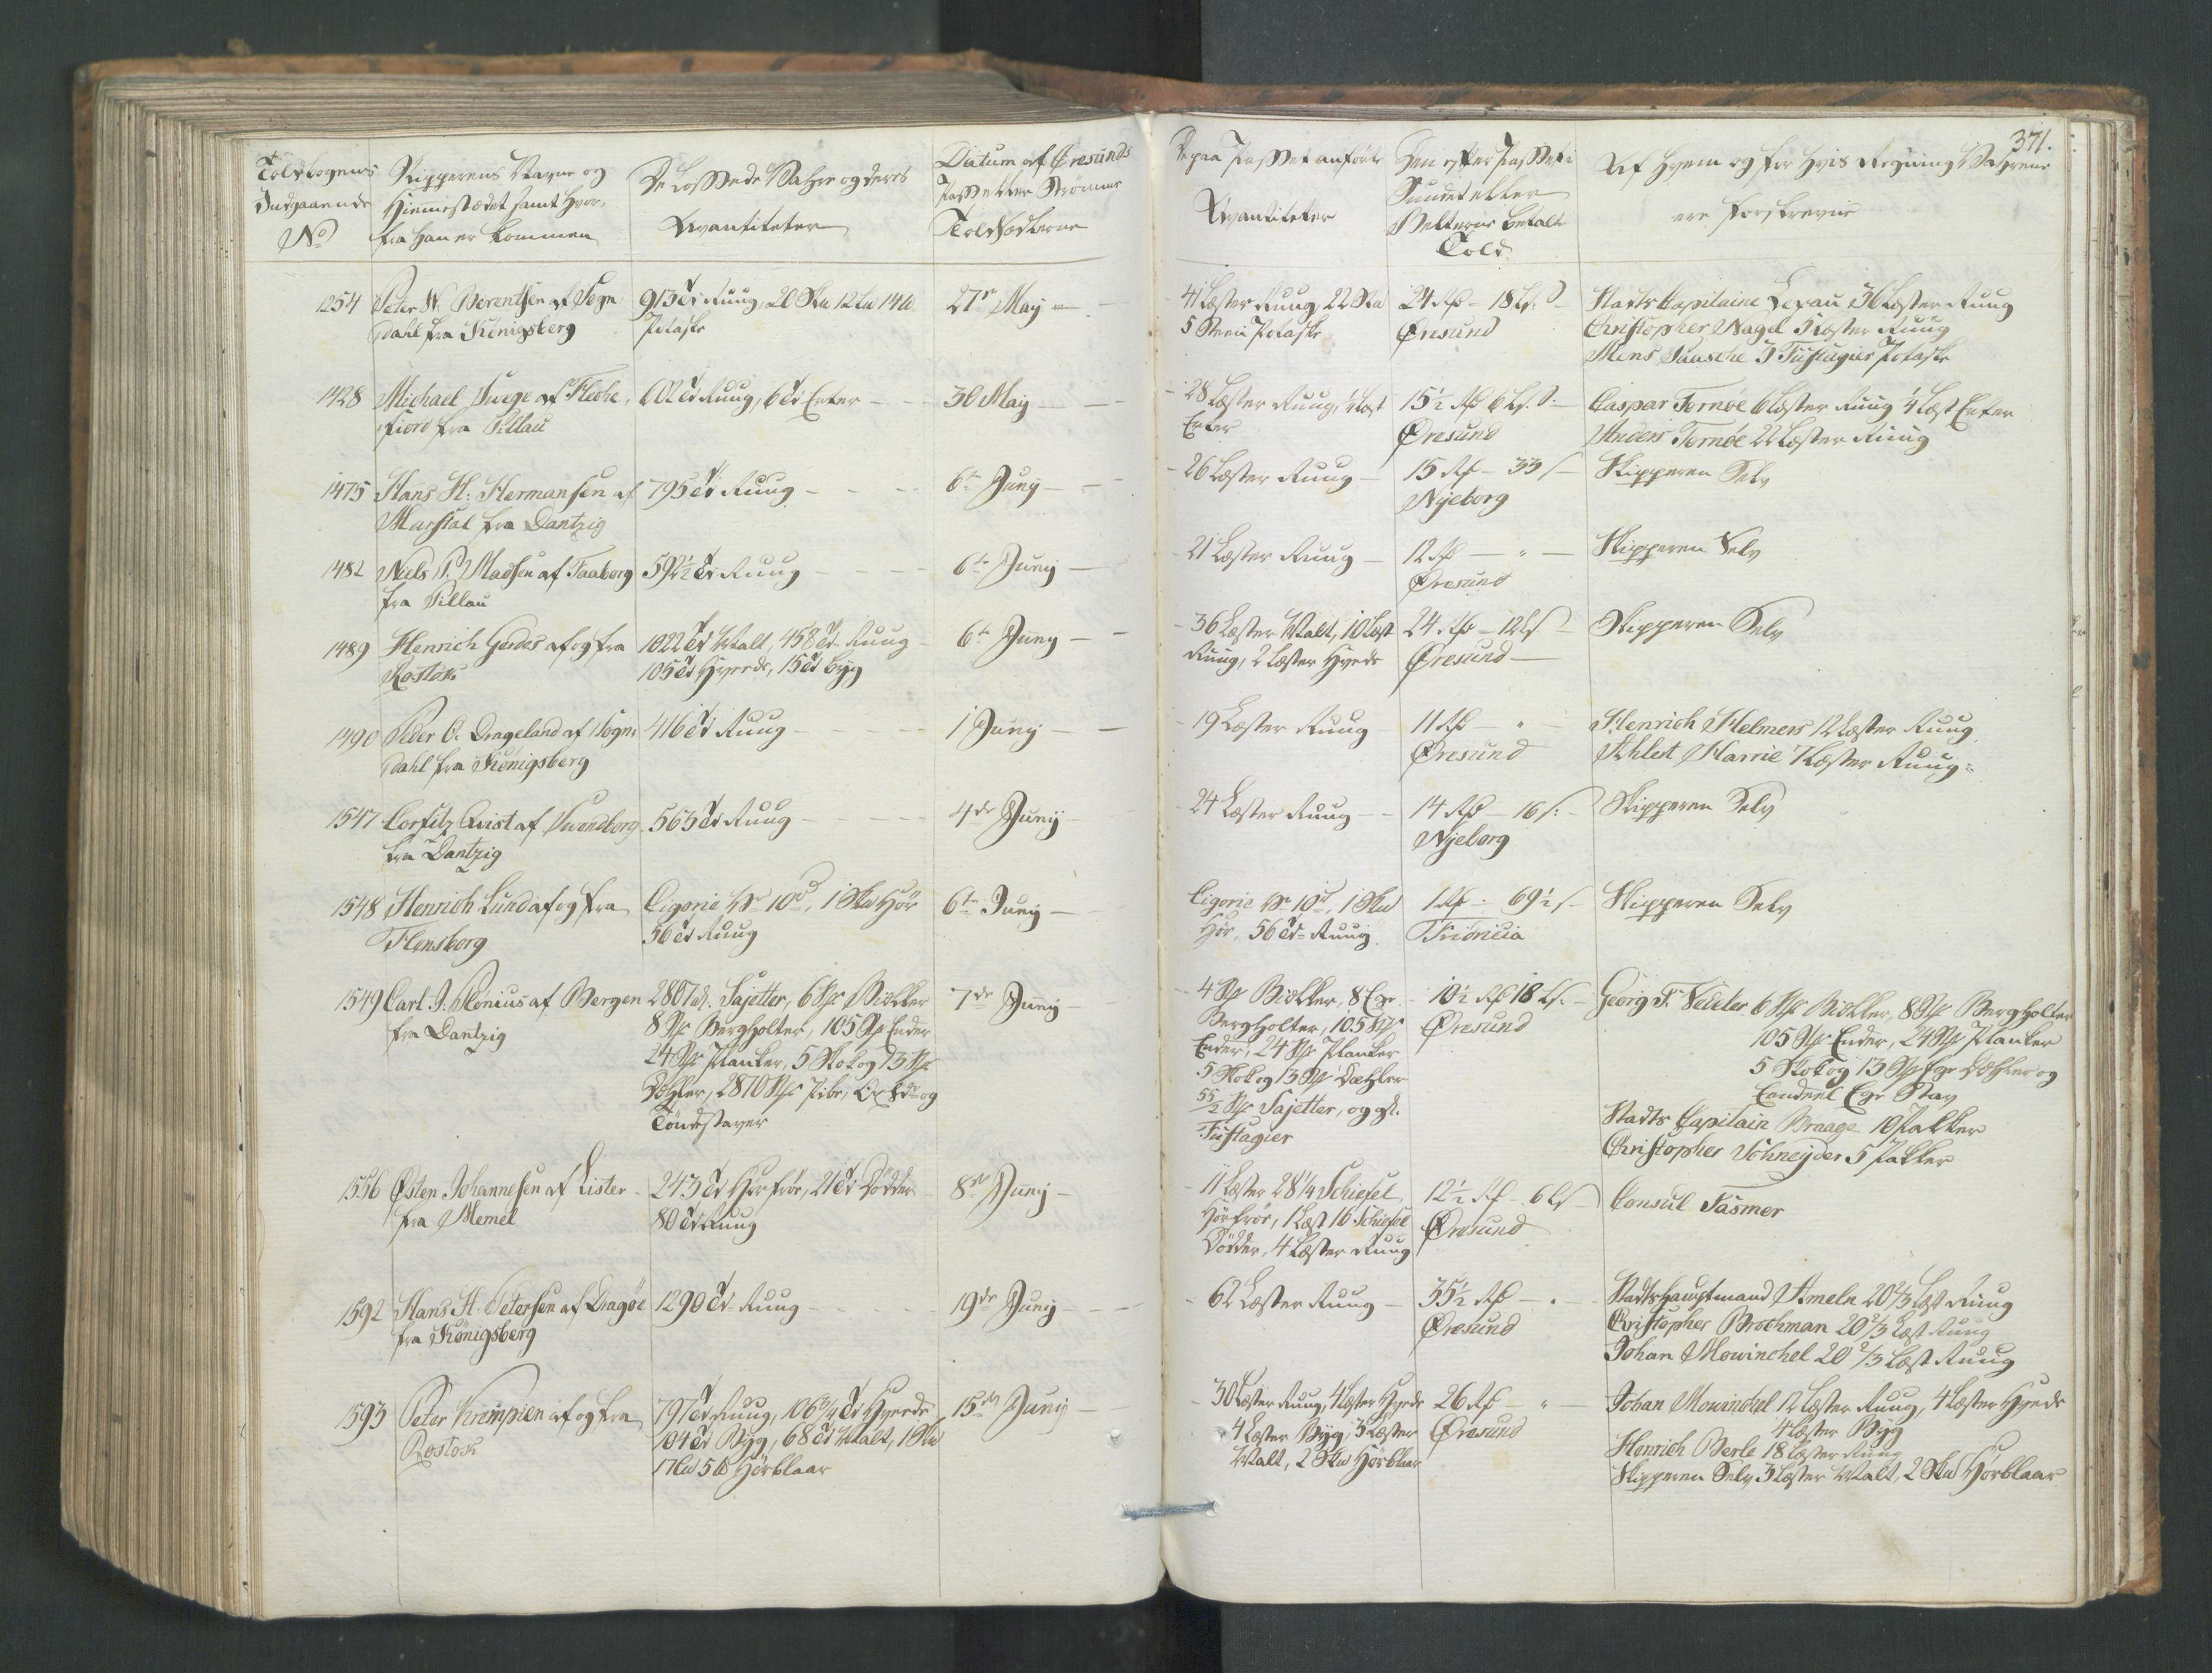 371.
Toldbogens
Indgaaende
No
Skipperens Navne og
Hiemmestædet samt hvor-
fra han er kommen
De lossede Vahre og deres
Qvantiteter
Datum af Øresunds
Pass eller Strømme
Toldsedlerne
De paa Passet anførte
Qvantiteter
Den efter Passet i
Sundet eller
Belterne betalte
Told
Af hvem og for hvis Regning Vahrene
ere forskrevne
1254 Peter W. Berentsen af Sogn
dahl fra Königsberg
913 Td Ruug, 20 Skt 12 Lt 14 lb
Potaske
27de May
41 Læster Ruug, 22 Skt
5 Steen Potaske
24 Rd - 18 Ls.
Øresund
Stadts Capitaine Lexau 36 Læster Ruug
Christopher Nagel 5 Læster Ruug
Mens Jansche 3 Fustagier Potaske
1428 Michael Svege af Fleche-
fiord fra Pillau
602 Td Ruug, 6 Td Erter
30 May
28 Læster Ruug, 1/4 Læst
Erter
15 1/2 Rd 6 Ls.
Øresund
Caspar Tornøe 6 Læster Ruug 1/4 Læst Erter
Anders Tornøe 22 Læster Ruug
1475 Hans H: Hermansen af
Marstal fra Dantzig
795 Td Ruug
6te Juny
26 Læster Ruug
15 Rd - 33 s
Nyeborg
Skipperen Selv
1482 Niels P. Madsen af Faaborg
fra Pillau
592 1/2 Td Ruug
6te Juny
21 Læster Ruug
12 Rd - " -
Øresund
Skipperen Selv
1489 Henrich Gerdes af og fra
Rostok
1022 Td Malt, 458 Td Ruug
105 Td Hvede, 15 Td Byg
6te Juny
36 Læster Malt, 10 Læst
Ruug, 2 Læster Hvede
24 Rd - 12 Ls
Øresund
Skipperen Selv
1490 Peder O. Drageland af Sogn-
dahl fra Königsberg
416 Td Ruug
1 Juny
19 Læster Ruug
11 Rd - " -
Øresund
Henrich Helmers 12 Læster Ruug
Ahlert Harrie 7 Læster Ruug
1547 Corfitz Qvist af Svendborg
fra Dantzig
563 Td Ruug
4de Juny
24 Læster Ruug
14 Rd - 16 s:
Nyeborg
Skipperen Selv
1548 Henrich Lund af og fra
Flensborg
Cigorie for 10 rd, 1 Skt Hør
56 Td Ruug
6te Juny
Cigorie for 10 rd, 1 Skt
Hør, 56 Td Ruug
1 Rd - 69 1/2 s
Fridricia
Skipperen Selv
1549 Carl J. Plönius af Bergen
fra Dantzig
2807 lb. Sajetter, 6 Stk Bielker
8 Stk Bergholter, 105 Stk Ender
24 Stk Planker, 5 Skok og 13 Stk
Dehler, 2870 Stk Pibe, Oxhd og
Tøndestaver
7de Juny
4 Stk Bielker, 8 Ege
Bergholter, 105 Stk
Ender, 24 Stk Planker
5 Skok og 13 Stk Dæhler
55/2 Stk Sajetter, og gl.
Fustagier
10 1/2 Rd 18 Ls.
Øresund
Georg F. Vedeler 6 Stk Bielker, 8 Stk Bergholter
105 Stk Ender, 24 Stk Planker
5 Skok og 13 Stk Ege Dæhler og
Eendeel Ege Stav
Stadts Capitain Braage 10 Pakker
Christopher Schneyder 5 Pakker
1556 Østen Johannesen af Lister
fra Memel
243 Td Hørfrøe, 21 Td Dødder
80 Td Ruug
8de Juny
11 Læster 28 1/4 Schiefel
Hørfrøe, 1 Læst 16 Schiefel
Dødder, 4 Læster Ruug
12 1/2 Rd - 6 Ls
Øresund
Consul Fasmer
1592 Hans H. Petersen af Dragøe
fra Königsberg
1290 Td Ruug
19de Juny
62 Læster Ruug
35 1/2 Rd
Øresund
Stadtshauptmand Ameln 20 2/3 Læst Ruug
Christopher Brochman 20 2/3 Læst Ruug
Johan Mowinchel 20 2/3 Læst Ruug
1593 Peter Krempien af og fra
Rostok
797 Td Ruug, 106 3/4 Td Hvede
104 Td Byg, 68 Td Malt, 1 Skt
17 Lt 5 lb Hørblaar
15de Juny
30 Læster Ruug, 4 Læster Hvede
4 Læster Byg, 3 Læster
Malt, 2 Skt Hørblaar
26 Rd - " -
Øresund
Johan Mowinchel 12 Læster Ruug, 4 Læster Hvede
4 Læster Byg
Henrich Berle 18 Læster Ruug
Skipperen Selv 3 Læster Malt, 2 Skt Hørblaar